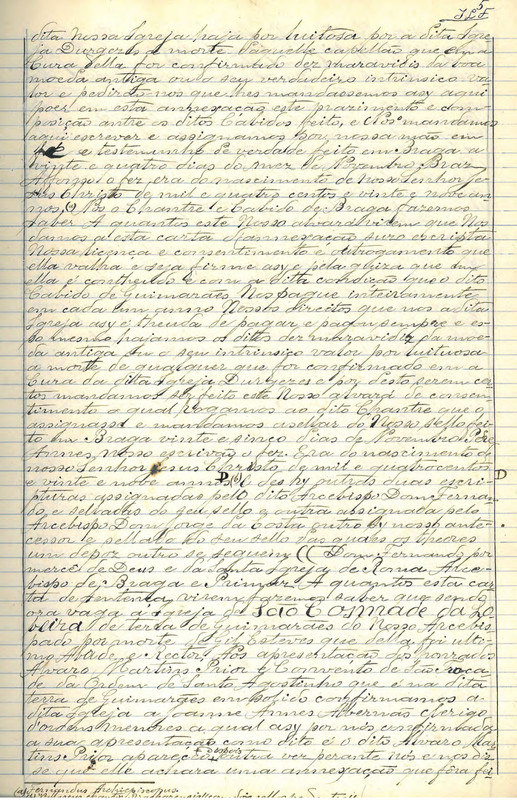 dita nossa Igreja haja por luitosa por a dita Igre
ja Durgezes a morte daquelle capellão que em a
Cura della for confirmado dez maravidis da boa
moeda antiga ou o seu verdadeiro intrinsico va
lor e pedirão nos que lhes mandassemos asy aqui
poer em esta anexação este prazimento e com
posição antre os ditos Cabidos feito, e Nos mandamos
aqui escrever e assignamos por nossa mão em
fee e testemunho de verdade feito em Braga a
vinte e quatro dias do mez de Novembro Braz
Affonso o fez era do nascimento de Nosso Senhor Je
sus Christo de mil e quatro centos e vinte e nove an
nos, Nós o Chantre e Cabido de Braga fazemos
saber A quantos este Nosso alvará virem que Nós
damos a esta carta d'anexação suso escripta
Nossa licença e consentimento e outrogamento que
ella valha e seja firme asy e pela guiza que em
ella é contheudo e com a dita condição que o dito
Cabido de Guimarães Nos pague inteiramente
em cada um anno Nossos direitos que nos a dita
Igreja asy é theuda de pagar e pagou sempre e es
so mesmo hajamos os ditos dez maravidiz da moe
da antiga ou o seu intrinsico valor por luituosa
a morte de qualquer que for confirmado em a
Cura da dita Igreja Durgezes e por desto serem cer
tos mandamos ser feito este Nosso alvará de consen
timento o qual rogamos ao dito Chantre que o
assignasse e mandamos asellar do Nosso sello fei
to em Braga vinte e sinco dias de Novembro
Annes, nosso escrivão o fez. Era do nascimento de
nosso Senhor Jesus Christo, de mil e quatrocentos
e vinte e nove annos D des hy outras duas escri D
pturas assignadas pello dito Arcebispo Dom Ferna
do, e selladas do seu sello e outra assignada pello
Arcebispo Dom Jorge da Costa outro sy nosso ante
cessor e sellada do seu sello das quaes os theores
um depoz outro se seguem (( Dom Fernando por
mercê de Deus e da Santa Igreja de Roma Arce
bispo de Braga e Primaz A quantos esta car
ta de sentença virem fazemos saber que sendo
ora vaga a Igreja de São Cosmade da Lo
beira de terra de Guimarães do Nosso Arcebis
pado por morte de Gil Esteves que della foi ulti
mo Abade e Rector Nós apresentação dos honrados
Alvaro Martins Prior e Convento de São Roca
de da Ordem de Santo Agostinho que é na dita
terra de Guimarães em solido confirmamos a
dita Igreja a Joanne Annes Albernas clerigo
d'ordens menores a qual asy por nós confirmada
a sua apresentação como dito é o dito Alvaro Mar
tins Prior apareceu outra ver perante nós e nos diz
se que elle achara uma annexação que fôra fei
(a) Fernandus Archiepiscopus